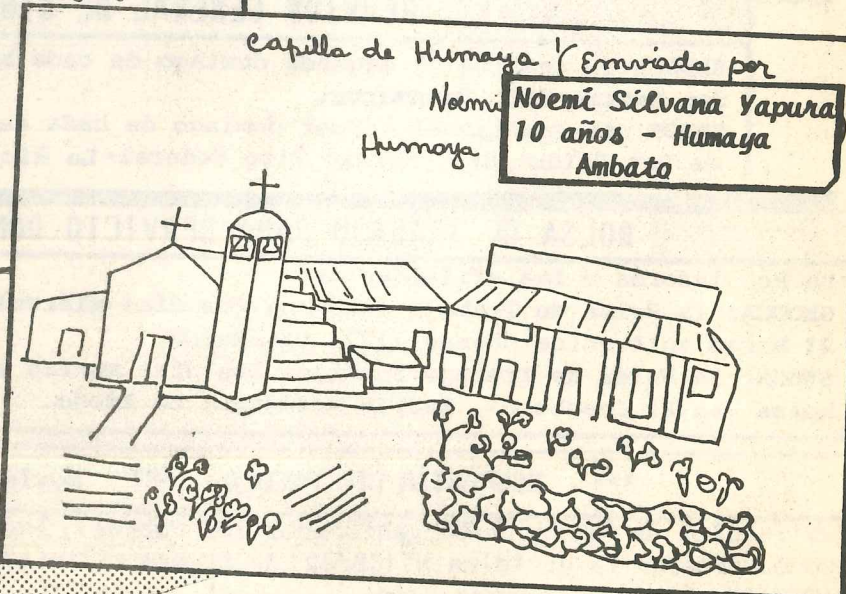 Capilla de Humaya (Emviada por
Noemi
Humaya
Noemí Silvana Yapura
10 años - Humaya
Ambato